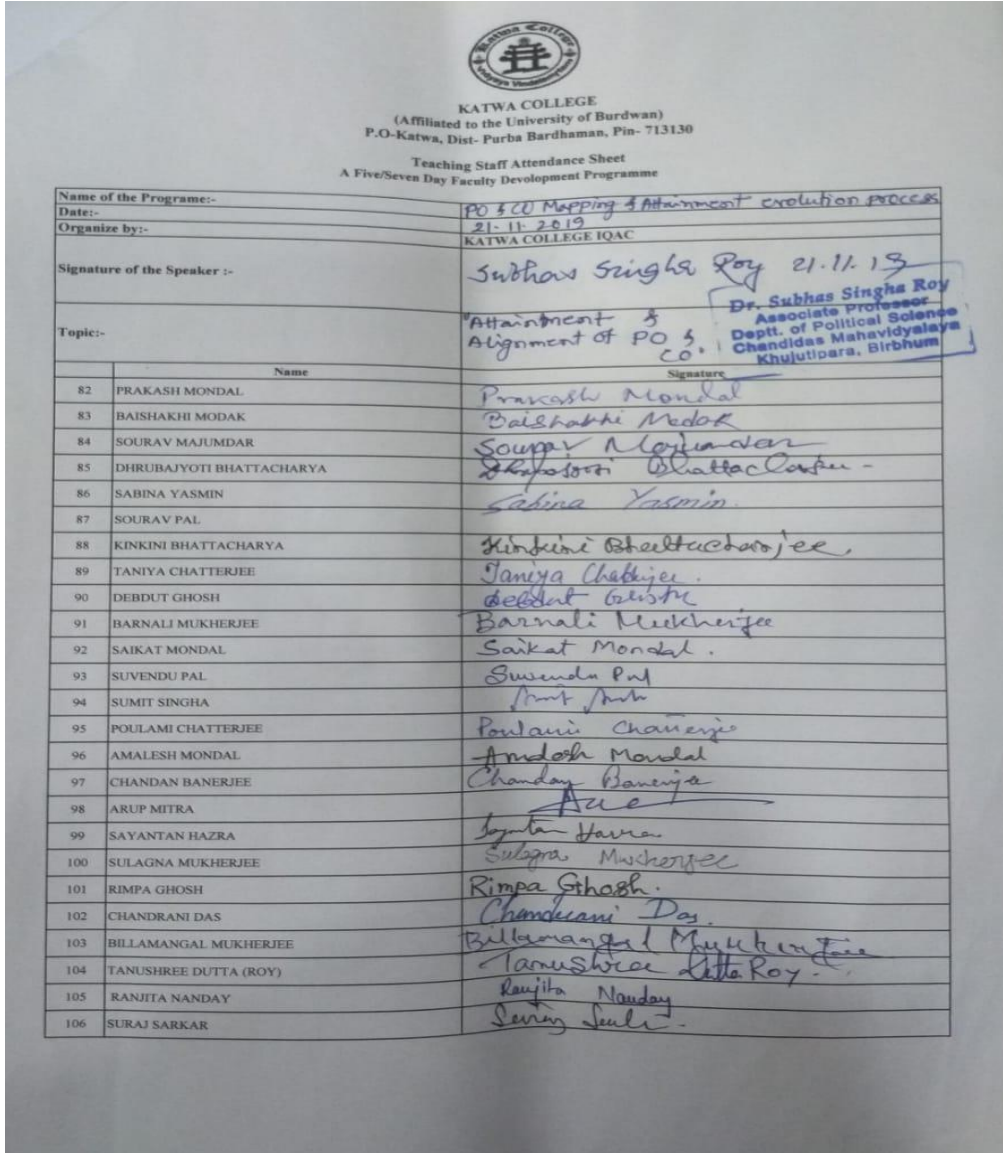 Katwa College
KATWA COLLEGE
(Affiliated to the University of Burdwan)
P.O-Katwa, Dist- Purba Bardhaman, Pin- 713130
Teaching Staff Attendance Sheet
A Five/Seven Day Faculty Devolopment Programme
Name of the Programe:- PO & CO Mapping & Attainment evolution process
Date:- 21-11-2019
Organize by:- KATWA COLLEGE IQAC
Signature of the Speaker :- Subhas Singha Roy 21.11.19
Dr. Subhas Singha Roy
Associate Professor
Deptt. of Political Science
Chandidas Mahavidyalaya
Khujutipara, Birbhum
Topic:- "Attainment &
Alignment of PO &
CO.
Name Signature
82 PRAKASH MONDAL Prakash Mondal
83 BAISHAKHI MODAK Baishakhi Modak
84 SOURAV MAJUMDAR Sourav Majumdar
85 DHRUBAJYOTI BHATTACHARYA
86 SABINA YASMIN Sabina Yasmin.
87 SOURAV PAL
88 KINKINI BHATTACHARYA Kinkini Bhattacharjee.
89 TANIYA CHATTERJEE Taniya Chatterjee.
90 DEBDUT GHOSH Debdut Ghosh
91 BARNALI MUKHERJEE Barnali Mukherjee
92 SAIKAT MONDAL Saikat Mondal.
93 SUVENDU PAL Suvendu Pal
94 SUMIT SINGHA
95 POULAMI CHATTERJEE Poulami Chatterjee
96 AMALESH MONDAL Amalesh Mondal
97 CHANDAN BANERJEE Chandan Banerjee
98 ARUP MITRA
99 SAYANTAN HAZRA Sayantan Hazra
100 SULAGNA MUKHERJEE Sulagna Mukherjee
101 RIMPA GHOSH Rimpa Ghosh.
102 CHANDRANI DAS Chandrani Das.
103 BILLAMANGAL MUKHERJEE Billamangal Mukherjee
104 TANUSHREE DUTTA (ROY) Tanushree Dutta Roy.
105 RANJITA NANDAY Ranjita Nanday
106 SURAJ SARKAR